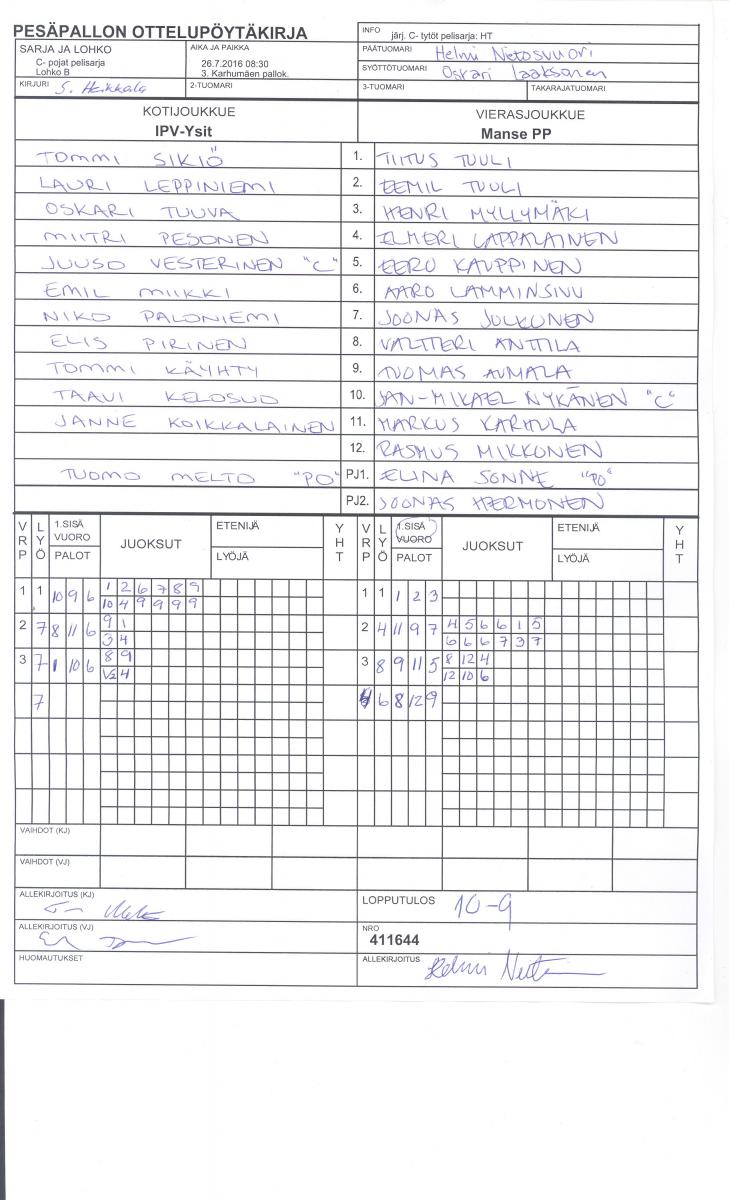 PESÄPALLON OTTELUPÖYTÄKIRJA
INFO järj. C- tytöt pelisarja: HT
SARJA JA LOHKO
C- pojat pelisarja
Lohko B
AIKA JA PAIKKA
26.7.2016 08:30
3. Karhumäen pallok.
PÄÄTUOMARI Helmi Nietosvuori
SYÖTTÖTUOMARI Oskari Laaksonen
KIRJURI S. Heikkala
2-TUOMARI
3-TUOMARI
TAKARAJATUOMARI
KOTIJOUKKUE
IPV-Ysit
VIERASJOUKKUE
Manse PP
TOMMI SIKIÖ 1. TIITUS TUULI
LAURI LEPPINIEMI 2. EEMIL TUULI
OSKARI TUUVA 3. HENRI MYLLYMÄKI
MIITRI PESONEN 4. ILMERI LAPPALAINEN
JUUSO VESTERINEN "C" 5. EERO KAUPPINEN
EMIL MIIKKI 6. AARO LAMMINSIVU
NIKO PALONIEMI 7. JOONAS JULKUNEN
ELIS PIRINEN 8. VALTTERI ANTTILA
TOMMI KÄYHTY 9. TUOMAS AUMALA
TAAVI KELOSUO 10. JAN-MIKAEL NYKÄNEN "C"
JANNE KOIKKALAINEN 11. MARKUS KARHULA
12. RASMUS MIKKONEN
TUOMO MELTO "PO" PJ1. ELINA SONNE "PO"
PJ2. JOONAS HERMONEN
VRP LYÖ 1.SISÄ VUORO PALOT JUOKSUT ETENIJÄ LYÖJÄ YHT VRP LYÖ 1.SISÄ VUORO PALOT JUOKSUT ETENIJÄ LYÖJÄ YHT
1 1 10 9 6 1 2 6 7 8 9 1 1 1 2 3
10 4 9 9 9 9
2 7 8 11 6 9 1 2 4 11 9 7 4 5 6 6 1 5
3 4 6 6 6 7 3 7
3 7 1 10 6 8 9 3 8 9 11 5 8 12 4
V2 4 12 10 6
7 6 8 12 9
VAIHDOT (KJ)
VAIHDOT (VJ)
ALLEKIRJOITUS (KJ)
LOPPUTULOS 10-9
ALLEKIRJOITUS (VJ)
NRO
411644
HUOMAUTUKSET
ALLEKIRJOITUS Helmi